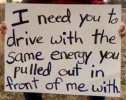 I need you to
drive with the
same energy you
pulled out in
front of me with